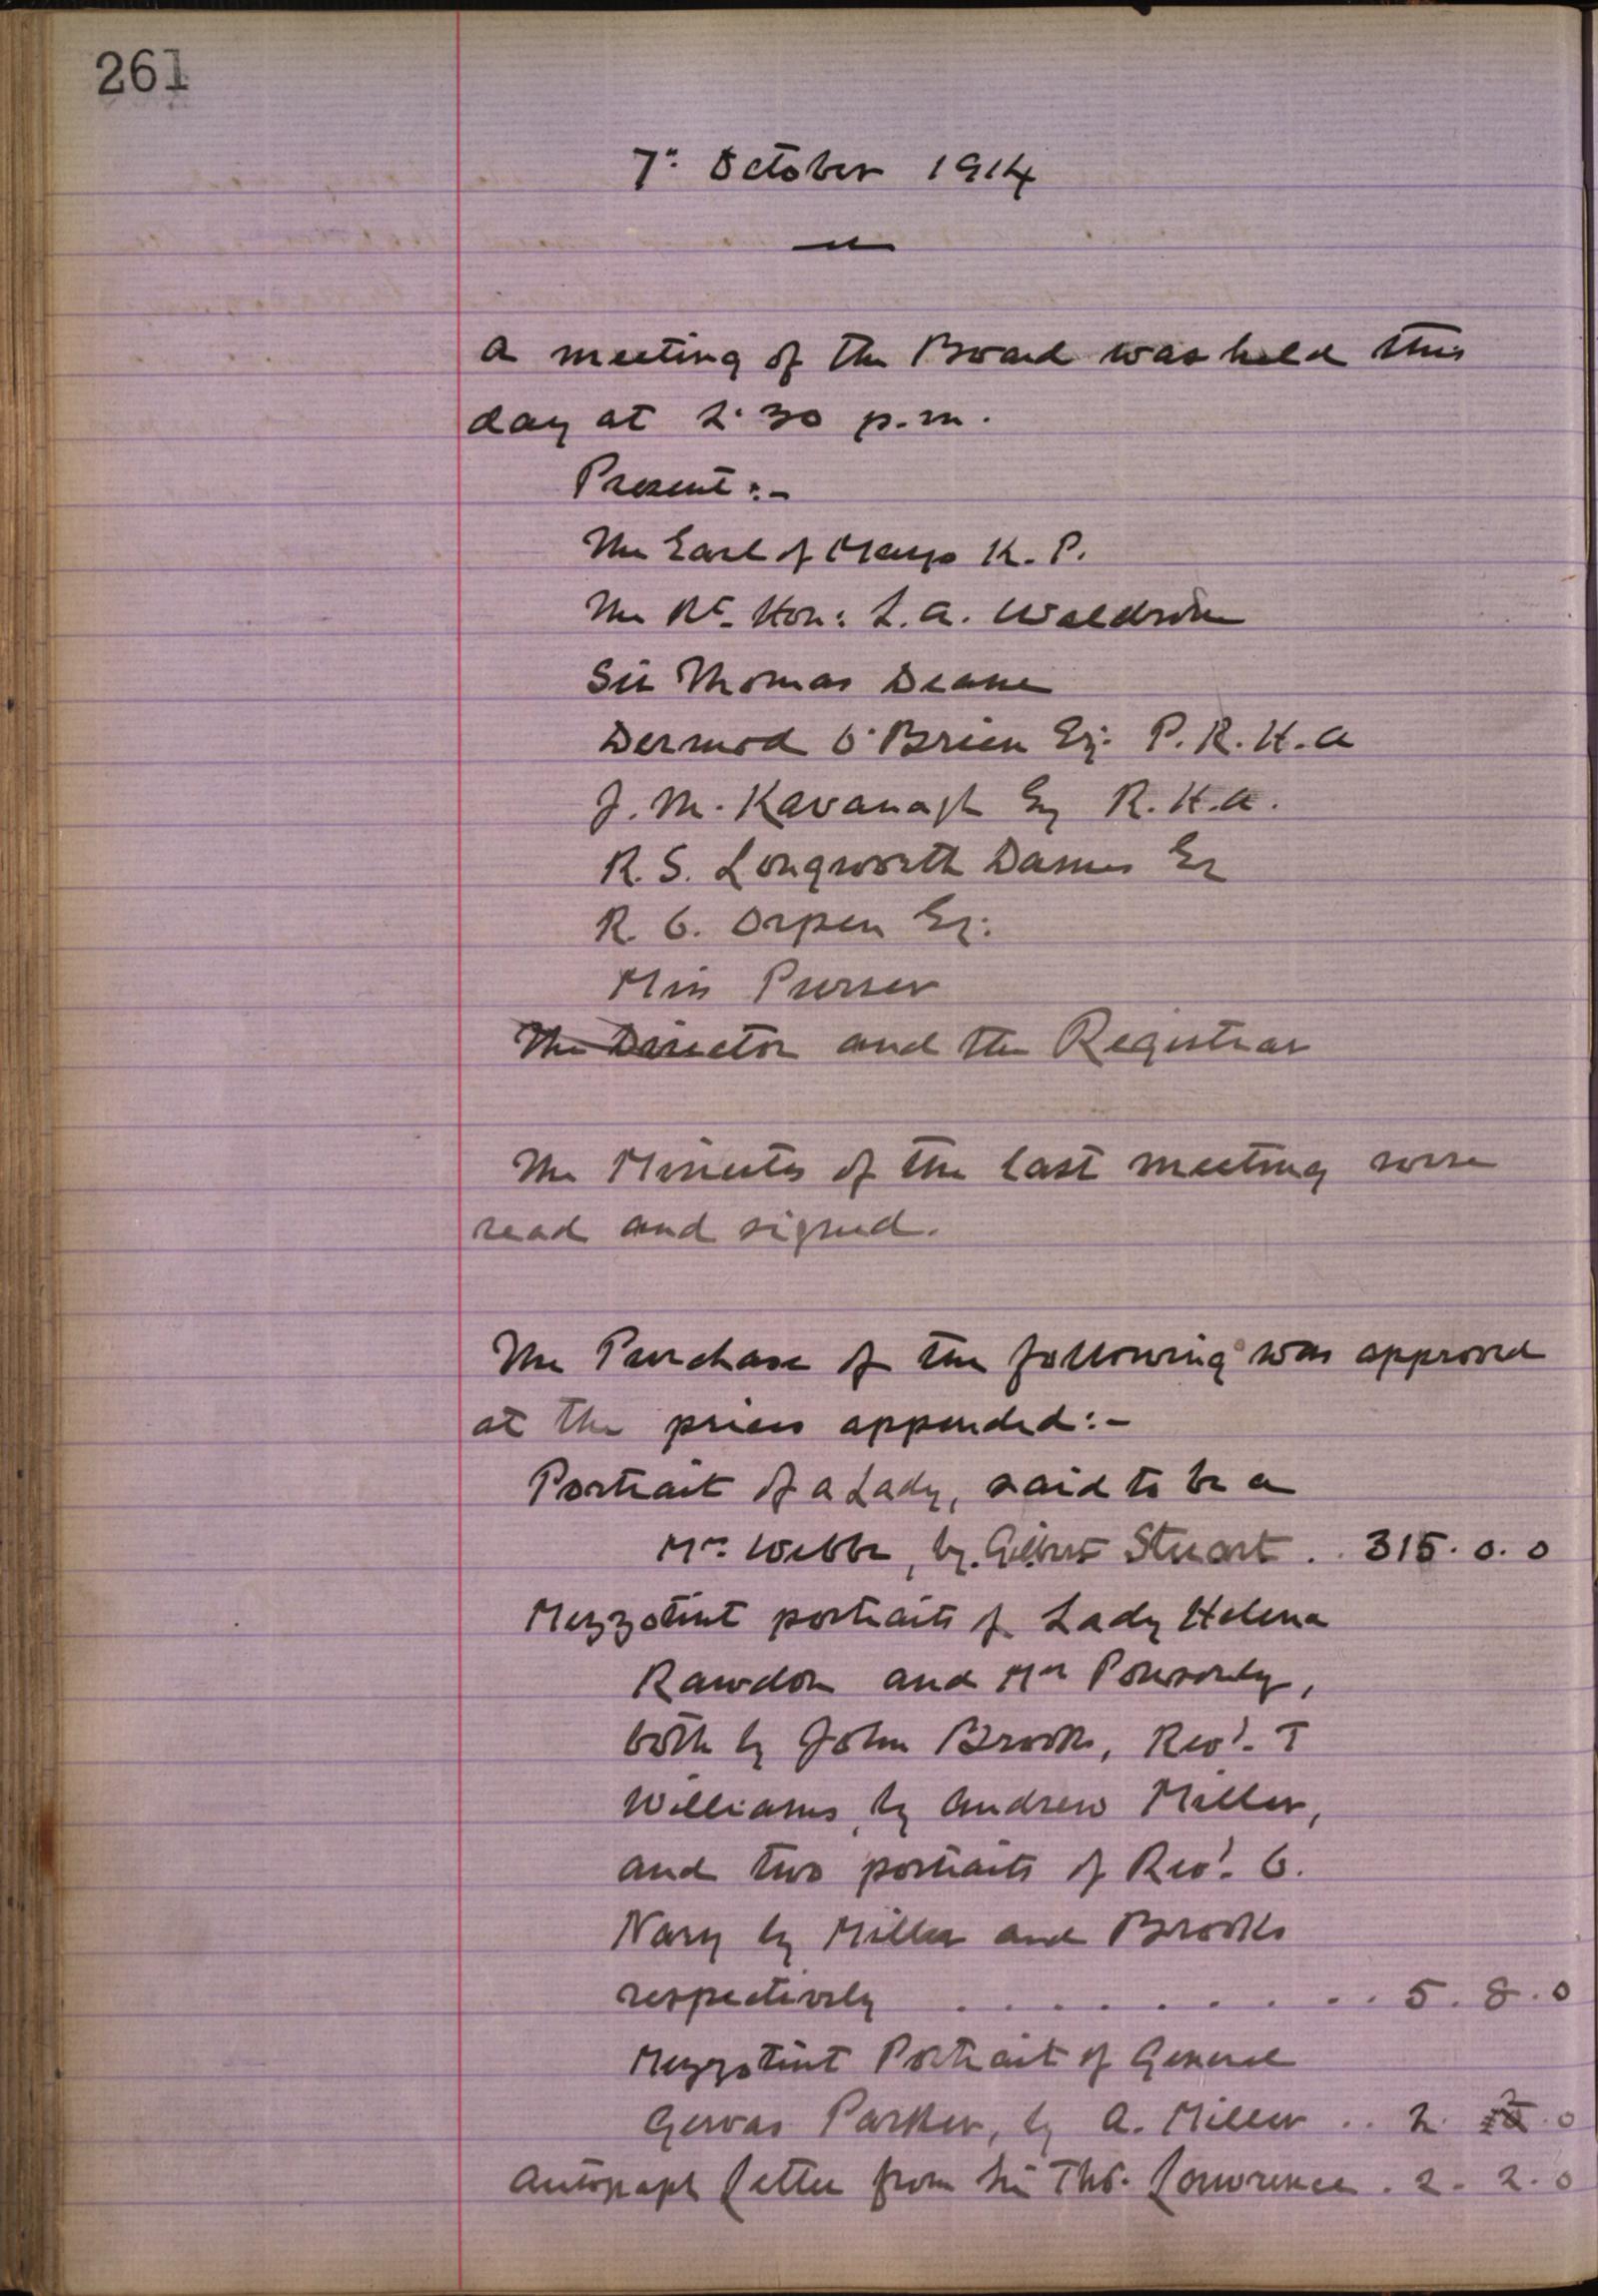 261
7th October 1914
A meeting of the Board was held this
day at 2.30 p.m.
Present:-
The Earl of Mayo K.P.
The Rt. Hon: L.A. Waldron
Sir Thomas Deane
Dermod O'Brien Esq: P.R.H.A
J.M. Kavanagh Esq R.H.A.
R.S. Longworth Dames Esq
R.C. Orpen Esq:
Miss Purser
The Director and the Registrar
The Minutes of the last meeting were
read and signed.
The Purchase of the following was approved
at the prices appended:-
Portrait of a Lady, said to be a
Mrs. Webb, by Gilbert Stuart . . 315.0.0
Mezzotint portraits of Lady Helena
Rawdon and Mrs Ponsonby,
both by John Brooks, Revd. T
Williams, by Andrew Miller,
and two portraits of Revd. C.
Nary by Miller and Brooks
respectively . . . . . . . . . . 5.8.0
Mezzotint Portrait of General
Gervas Parker, by A. Miller .. 2. 2.0
Autograph letter from Sir Thos. Lawrence . 2. 2.0